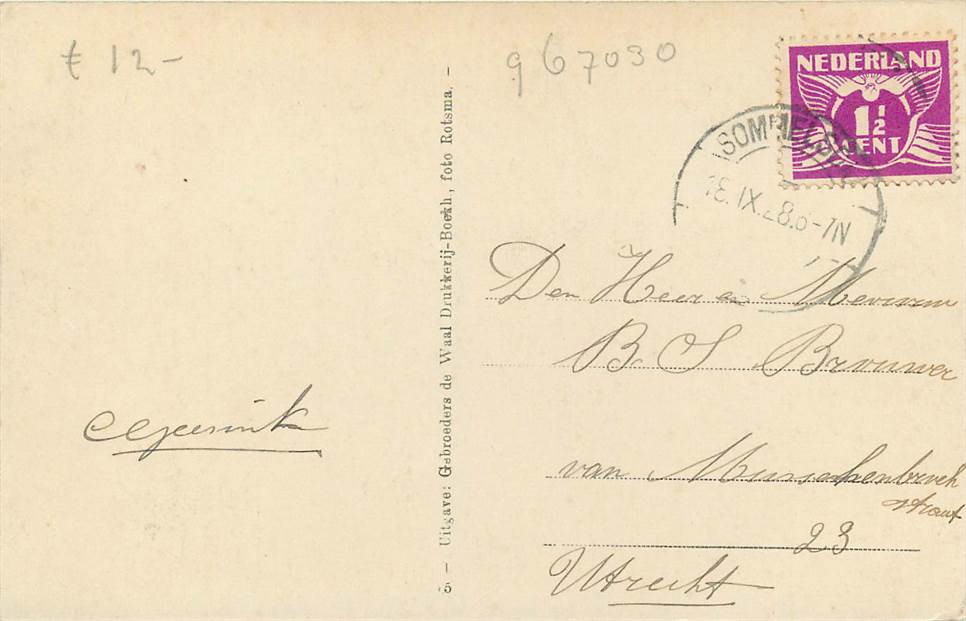 £ 12-
967030
NEDERLAND
1½
CENT
SOMMELSDIJK
18.IX.28.6-7N
5 - Uitgave: Gebroeders de Waal Drukkerij-Boekh., foto Rotsma. -
Den Heer en Mevrouw
B S Brouwer
van Musschenbroek
straat
23
Utrecht